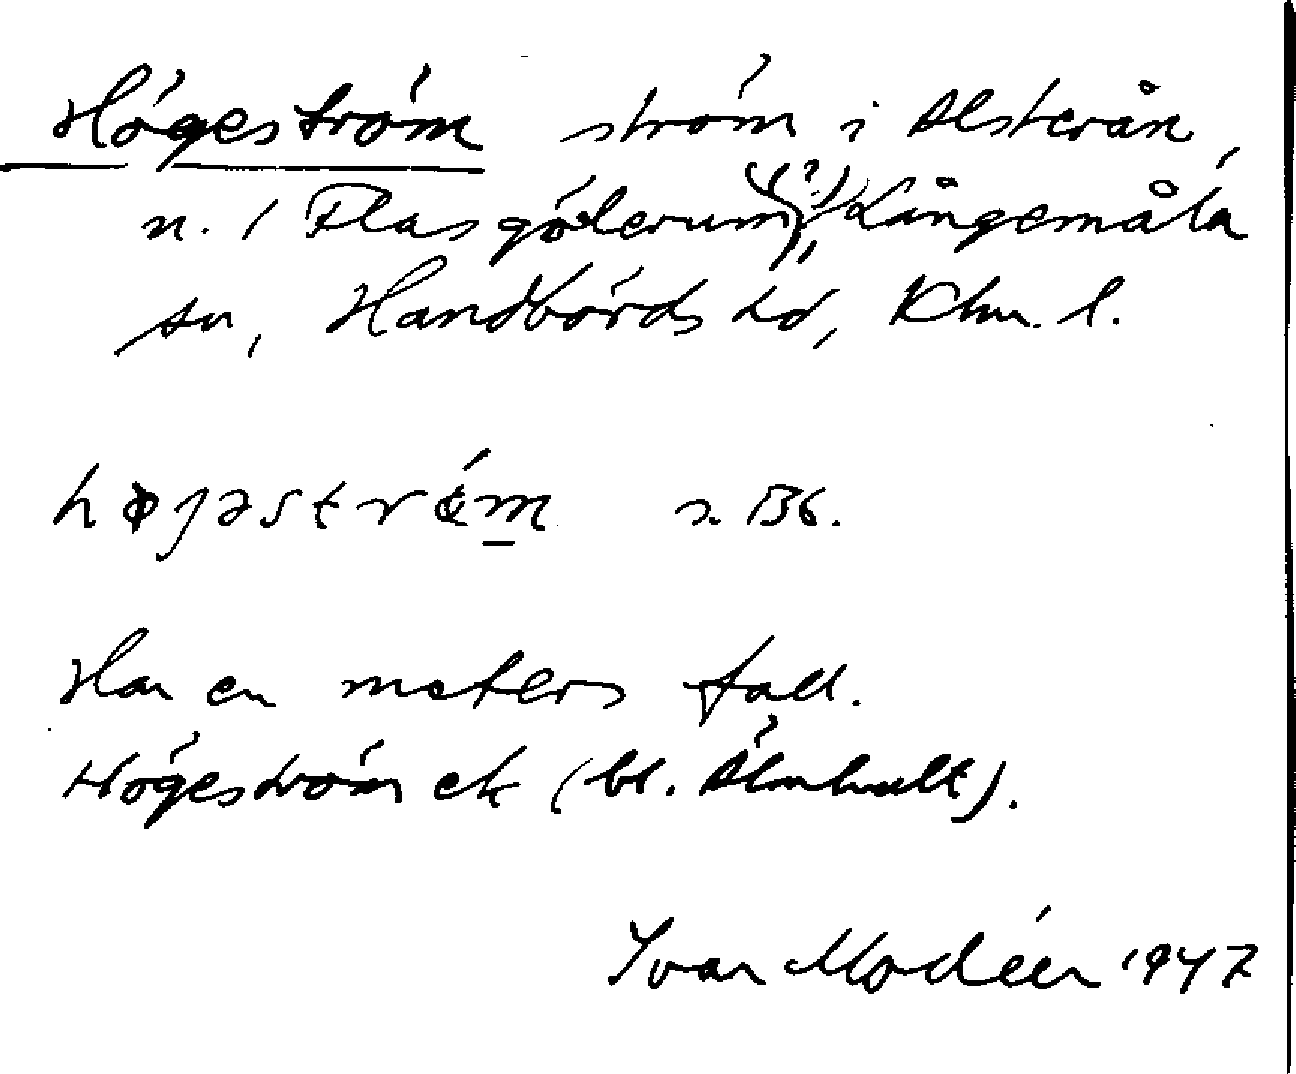 Högeström ström i Alsterån,
n. i Flasgölerum (?), Långemåla
sn, Handbörds hd, Klm. l.
højəstrǿm s. 136.
Har en meters fall.
Högeström ek (bl. Älmhult).
Ivar Modéer 1947